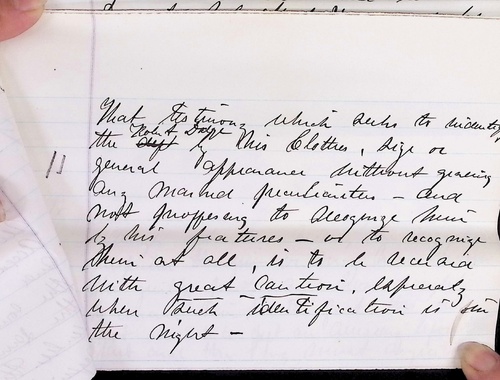 That testimony which seeks to identify
the Robt Dodge deft by his Clothes, size or
general appearance without giving
any marked peculiarities – and
not proffering to recognize him
by his features – or to recognize
them at all, is to be received
with great caution, especially
when such identification is in
the night –
11